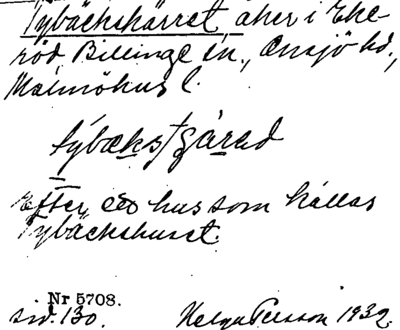 Tybäckskärret åker i Eke-
röd, Billinge sn., Onsjö hd.,
Malmöhus l.
týbæks/tʒárəd
Efter ett hus som kallas
Tybäckshuset.
Nr 5708.
sid. 130. Helga Persson 1932.